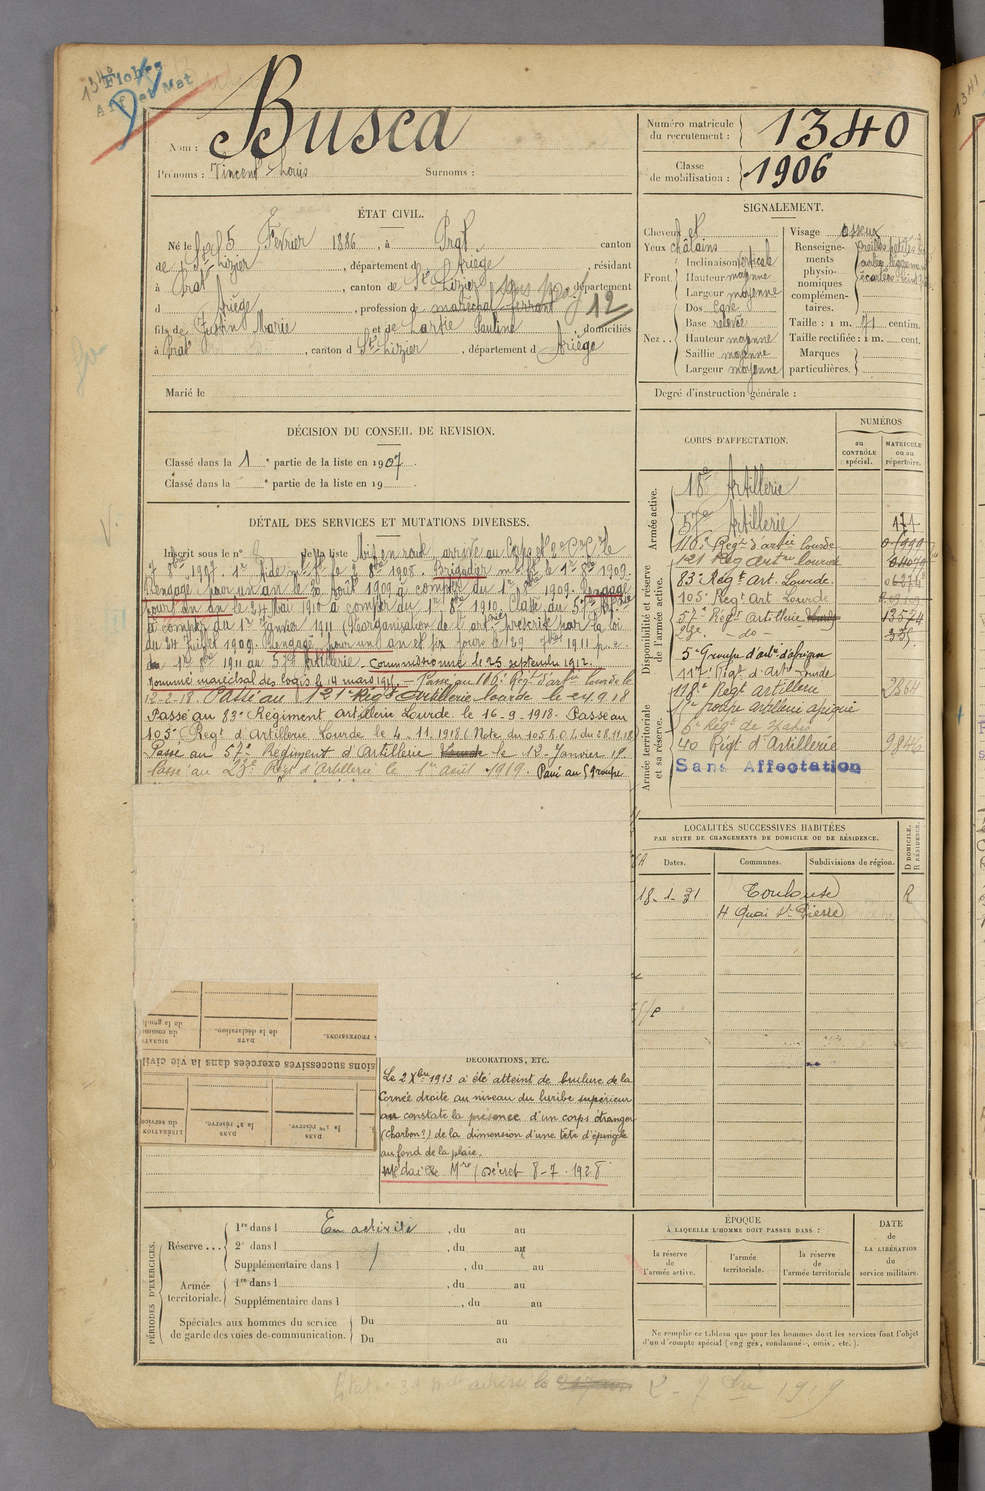 1340
Fiches
Mat
Nom : Busca
Prénoms : Vincent Louis Surnoms :
Numéro matricule du recrutement : 1340
Classe de mobilisation : 1906
ÉTAT CIVIL.
Né le 5 Février 1886, à Prat, canton
de St Lizier, département d Ariège, résidant
à Prat, canton de St Lizier, département
d Ariège, profession de maréchal-ferrant 12
fils de Justin Marie et de Lartie Pauline, domiciliés
à Prat, canton d St Lizier, département d Ariège
Marié le
SIGNALEMENT.
Cheveux et
Yeux châtains
Front. Inclinaison verticale
Hauteur moyenne
Largeur moyenne
Nez . . Dos cave
Base relevée
Hauteur moyenne
Saillie moyenne
Largeur moyenne
Visage osseux
Renseignements physionomiques complémentaires. oreilles petites
écartées
Taille : 1 m. 71 centim.
Taille rectifiée : 1 m. cent.
Marques particulières.
Degré d'instruction générale :
DÉCISION DU CONSEIL DE REVISION.
Classé dans la 1 e partie de la liste en 1907.
Classé dans la e partie de la liste en 19
DÉTAIL DES SERVICES ET MUTATIONS DIVERSES.
Inscrit sous le n° de la liste Mis en route, arrivé au Corps et 2e Cr Ct le
7 8bre 1907. 1er Aide mal ft le 2 8bre 1908. Brigadier mal ft le 1er 8bre 1909.
Rengagé pour un an le 20 août 1909 à compter du 1er 8bre 1909. Rengagé
pour un an le 24 Mai 1910 à compter du 1er 8bre 1910. Classé au 57e
à compter du 1er Janvier 1911 (Réorganisation de l'artrie prescrite par la loi
du 24 Juillet 1909. Rengagé pour un an et six jours le 29 7bre 1911 p.c.
du 1er 8bre 1911 au 57e Artillerie. Commissionné le 25 septembre 1912.
Nommé maréchal des logis le 19 mars 1917. Passé au 110e Regt d'artie lourde le
12-2-18. Passé au 121e Regt d'Artillerie lourde le 24.9.18
Passé au 83e Régiment artillerie Lourde le 16-9-1918. Passé au
105e Regt d'Artillerie Lourde le 4.11.1918 (Note du 105 B.O.L du 28.11.18
Passé au 57e Régiment d'Artillerie Lourde le 12 Janvier 19.
Passé au 23e Regt d'Artillerie le 1er août 1919. Passé au 5 Groupe
CORPS D'AFFECTATION.
NUMÉROS
au CONTRÔLE spécial.
MATRICULE ou au répertoire.
Armée active.
18e Artillerie
57e Artillerie 171
Disponibilité et réserve de l'armée active.
110e Regt d'artie lourde
121 Reg artie lourde
83e Regt Art. Lourde.
105e Regt Art Lourde
57e Regt artillerie Lourde 13574
23e - do - 325
5e Groupe d'artie d'afrique
Armée territoriale et sa réserve.
117e Regt d'artie Lourde
118e Regt artillerie 2864
40 Regt d'Artillerie 9846
Sans Affectation
LOCALITÉS SUCCESSIVES HABITÉES
PAR SUITE DE CHANGEMENTS DE DOMICILE OU DE RÉSIDENCE.
Dates. Communes. Subdivisions de région. D DOMICILE. R RÉSIDENCE.
18-1-31 Toulouse R
4 Quai St Pierre
PROFESSIONS.
DATE de la déclaration.
sions successives exercées dans la vie civil
DANS la 1re réserve.
DANS la 2e réserve.
LIBÉRATION du service
DÉCORATIONS, ETC.
Le 2 Xbre 1913 a été atteint de brulure de la
Cornée droite au niveau du limbe supérieur
on constate la présence d'un corps étranger
(Charbon?) de la dimension d'une tête d'épingle
au fond de la plaie.
Médaille Mre (Décret 8-7-1928
PÉRIODES D'EXERCICES.
Réserve . . . 1re dans l En activité, du au
2e dans l , du au
Supplémentaire dans l , du au
Armée territoriale. 1re dans l , du au
Supplémentaire dans l , du au
Spéciales aux hommes du service de garde des voies de communication. Du au
Du au
ÉPOQUE
A LAQUELLE L'HOMME DOIT PASSER DANS :
la réserve de l'armée active.
l'armée territoriale.
la réserve de l'armée territoriale
DATE de LA LIBÉRATION du service militaire.
Ne remplir ce tableau que pour les hommes dont les services font l'objet
d'un décompte spécial (engagés, condamnés, omis, etc.).